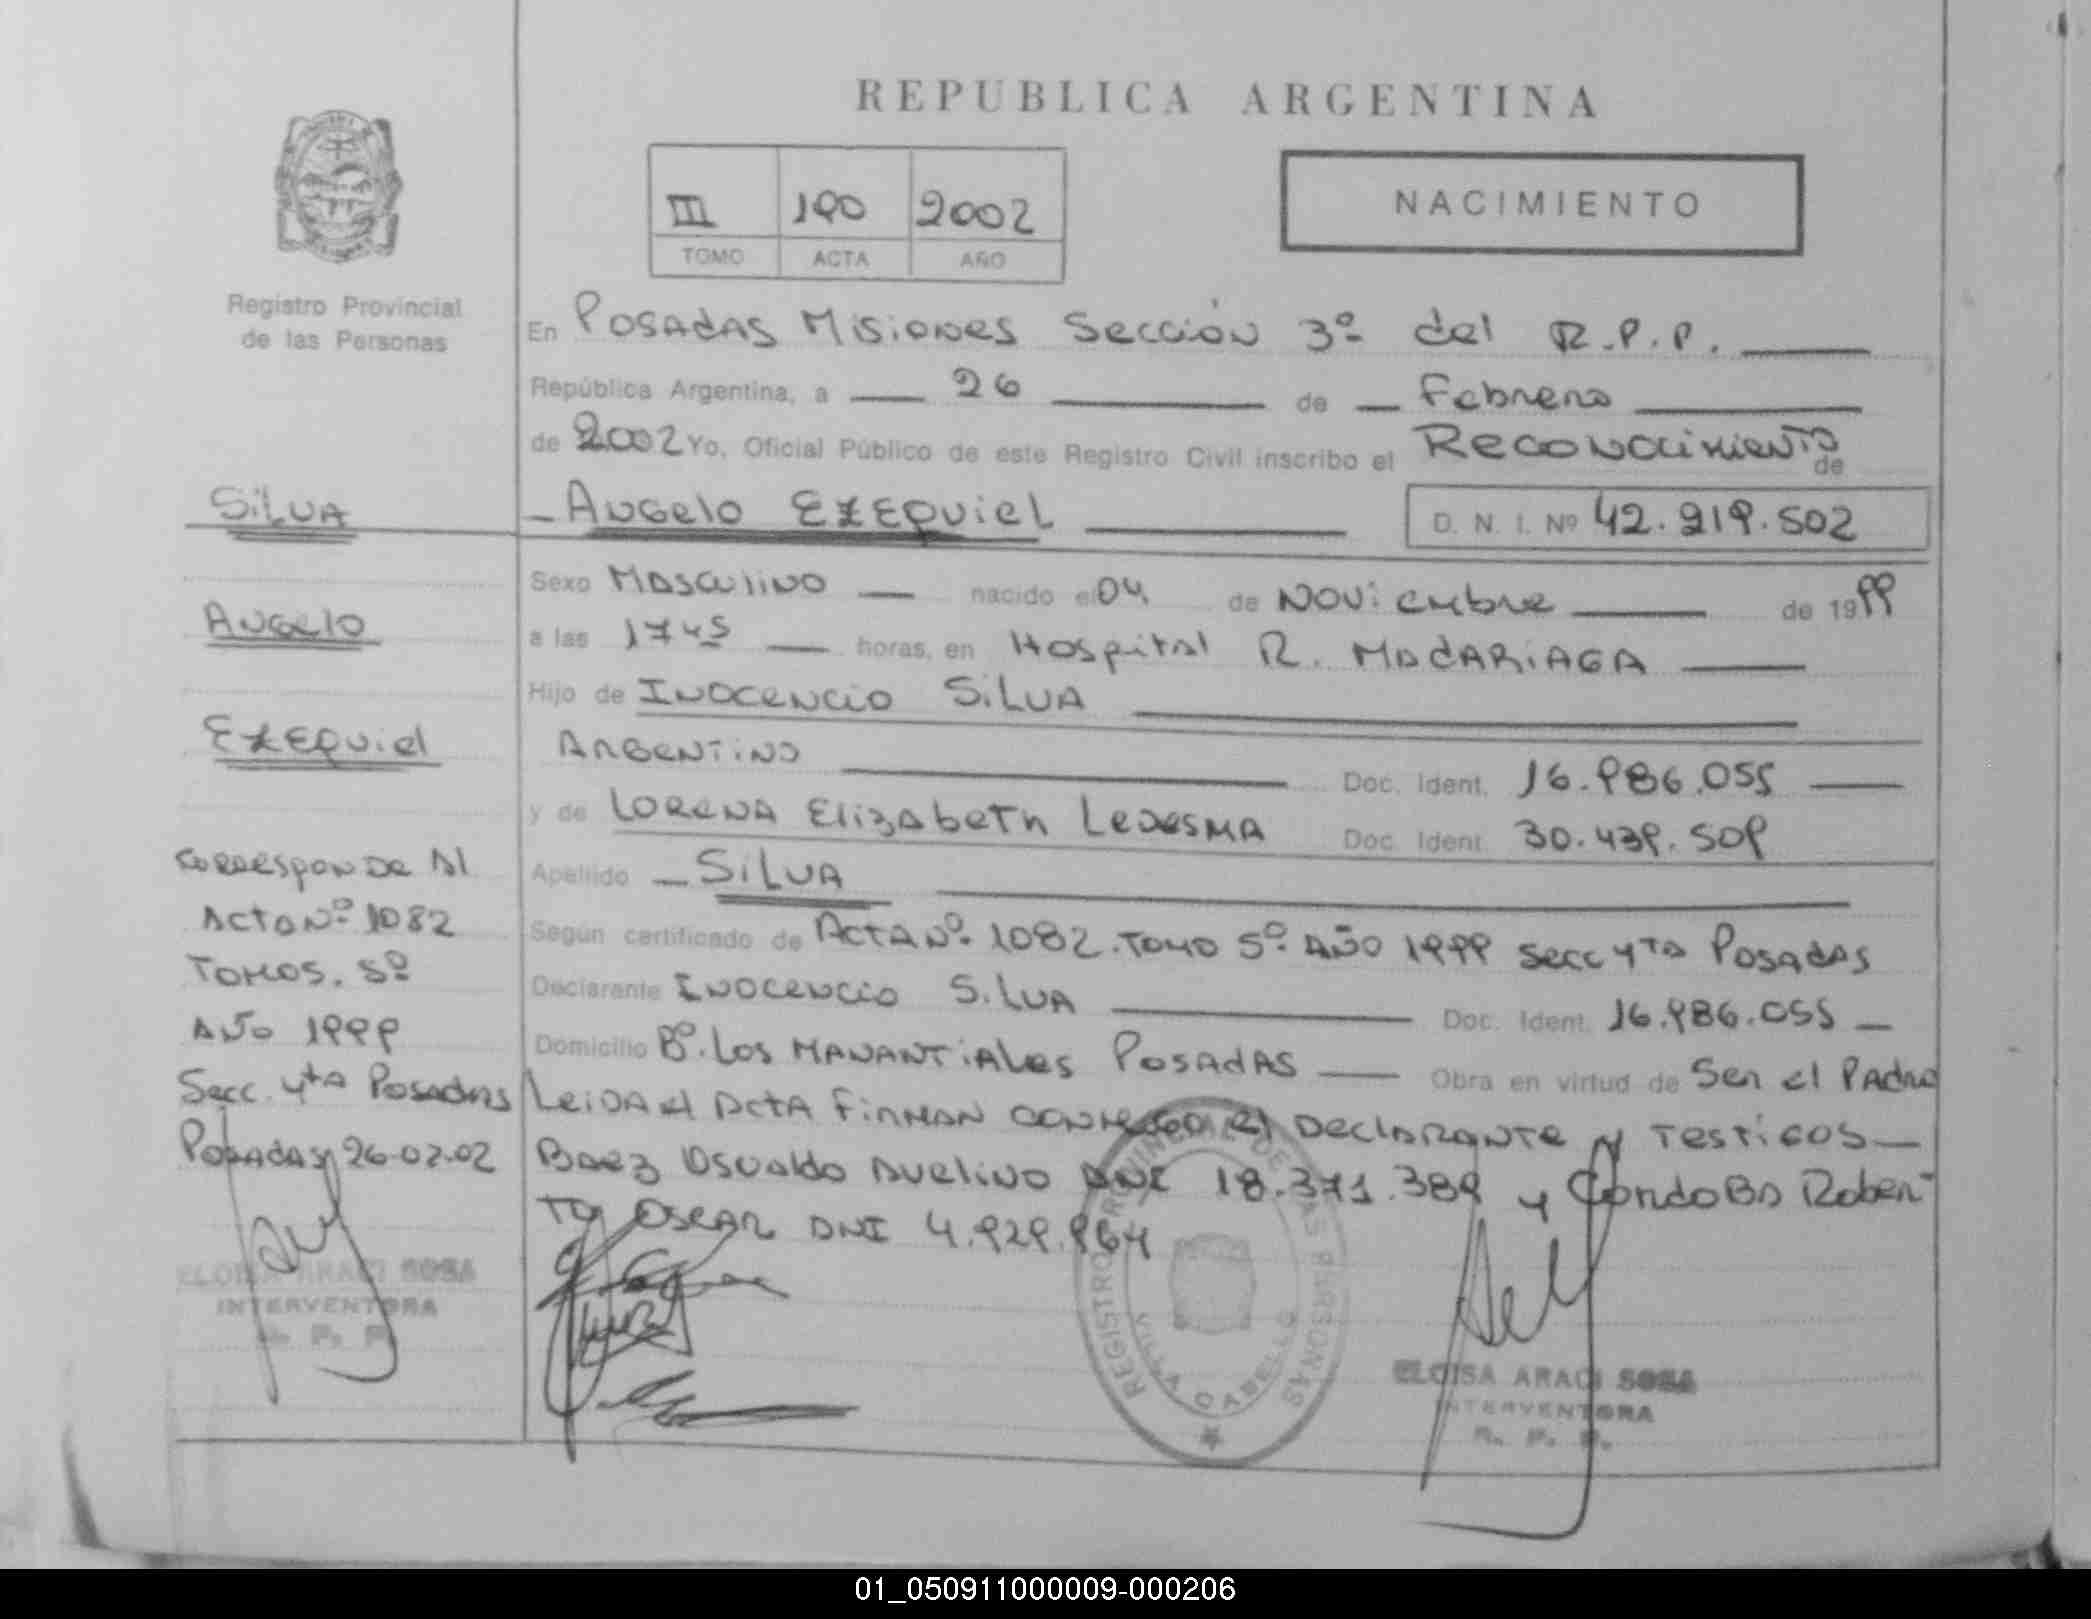 REPUBLICA ARGENTINA
NACIMIENTO
III 190 2002
TOMO ACTA AÑO
Registro Provincial
de las Personas
En Posadas Misiones Sección 3º del R.P.P.
República Argentina, a 26 de Febrero
de 2002 Yo, Oficial Público de este Registro Civil inscribo el Reconocimiento de
Angelo Ezequiel D. N. I. Nº 42.919.502
Sexo Masculino nacido el 04 de Noviembre de 1999
a las 17 45 horas, en Hospital R. Madariaga
Hijo de Inocencio Silva
Argentino Doc. Ident. 16.986.055
y de Lorena Elizabeth Ledesma Doc. Ident. 30.439.509
Apellido Silva
Según certificado de Acta Nº 1082. Tomo 5º Año 1999 Secc 4ta Posadas
Declarante Inocencio Silva Doc. Ident. 16.986.055
Domicilio Bº. Los Manantiales Posadas Obra en virtud de Ser el Padre
Leida el Acta Firman conmigo el Declarante y Testigos
Baez Osvaldo Avelino DNI 18.371.389 y Rober-
to Oscar DNI 4.929.964
Silva
Angelo
Ezequiel
Corresponde Al
Acta Nº 1082
Tomos. 5º
Año 1999
Secc. 4ta Posadas
Posadas 26-02-02
ELOISA ARACI SOSA
INTERVENTORA
R. P. P.
REGISTRO PROVINCIAL DE LAS PERSONAS
VILLA CABELLO
ELOISA ARACI SOSA
INTERVENTORA
R. P. P.
01_050911000009-000206